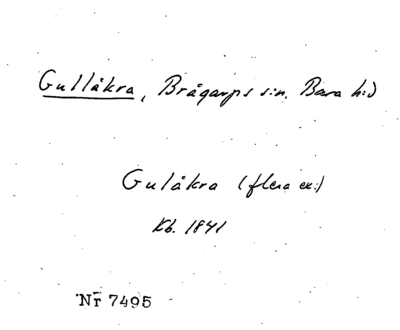 Gullåkra, Brågarps s:n. Bara h:d
Gulåkra (flera ex:)
Kb. 1841
Nr 7495